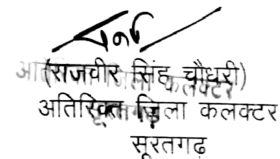 (राजवीर सिंह चौधरी)
अतिरिक्त जिला कलक्टर
सूरतगढ़